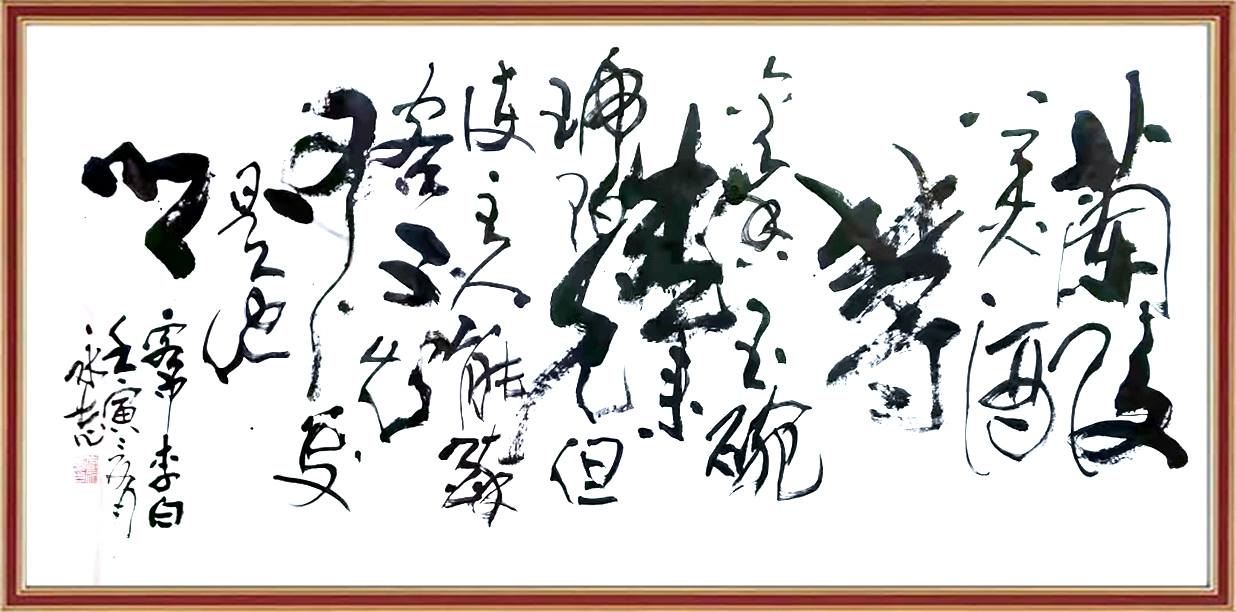 蘭陵
美酒
郁
金香玉碗
盛来
琥珀光但
使主人能醉
客不知
何处
是他
乡
客中 李白
壬寅 月
永志